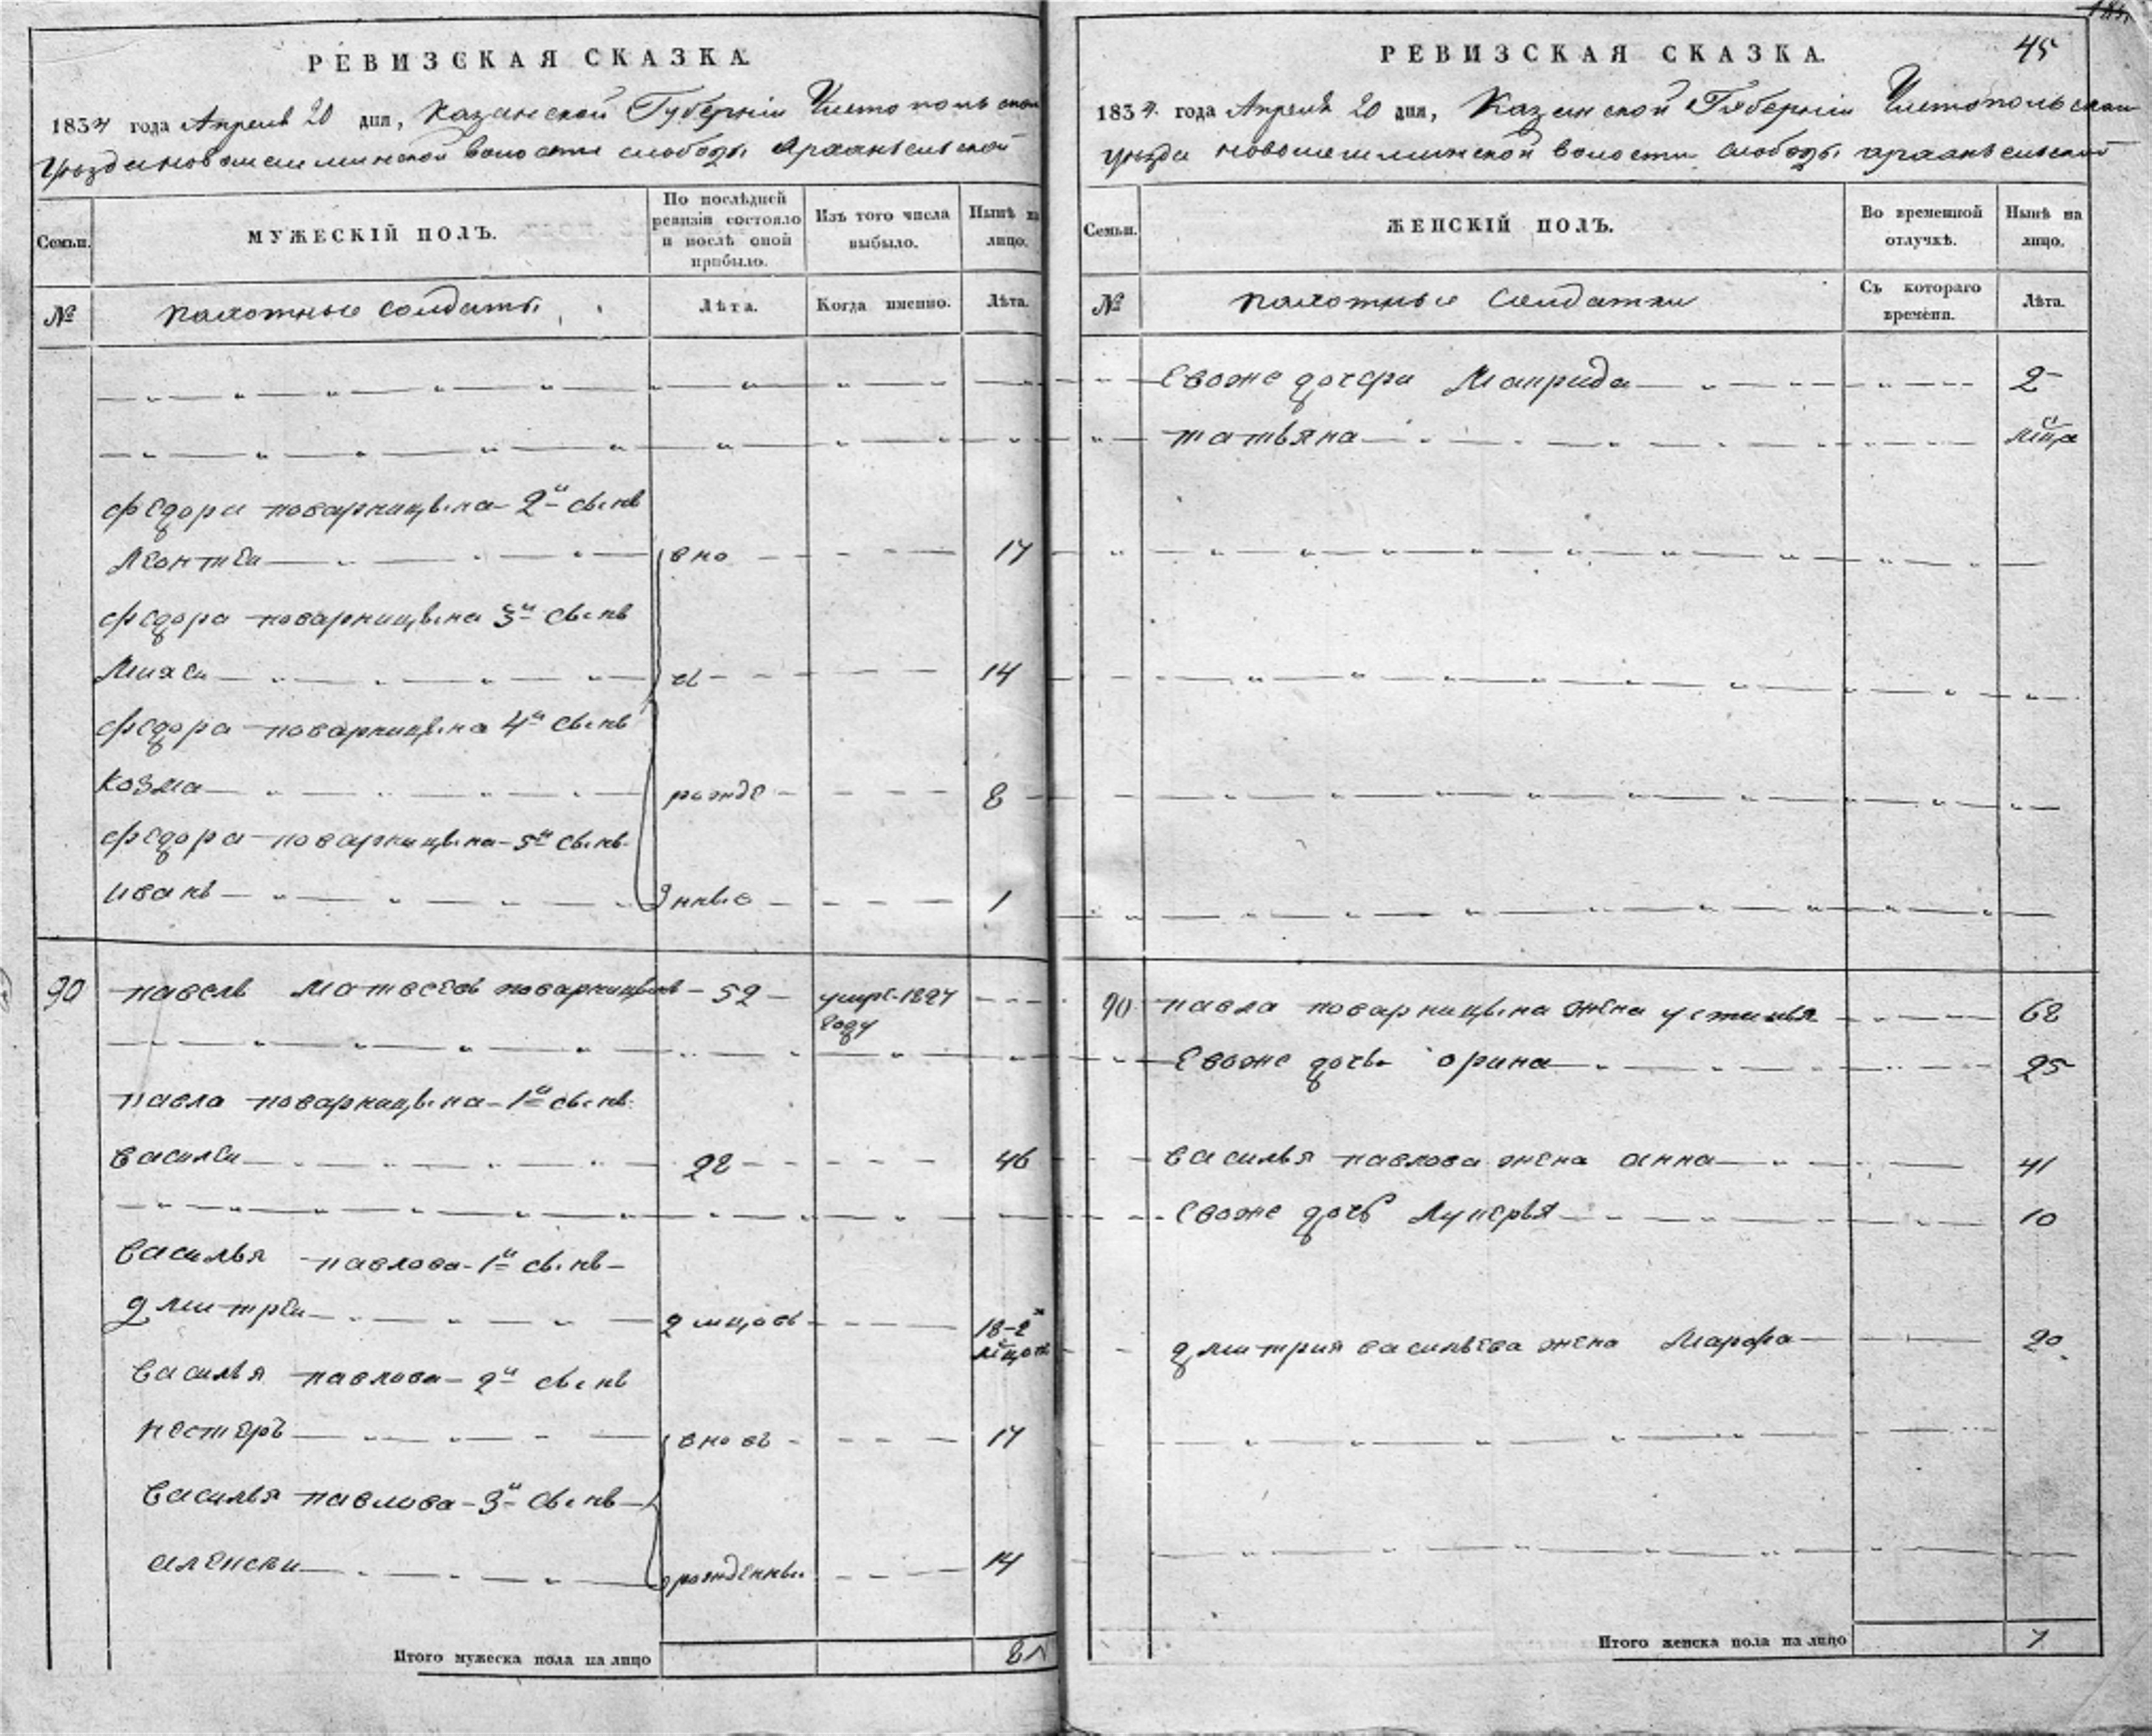 РЕВИЗСКАЯ СКАЗКА.
1834 года Апреля 20 дня, Казанской Губернiи Чистопольской
уезда новошешминской волости слободы архангельской
Семьи.
МУЖЕСКIЙ ПОЛЪ.
По послѣдней ревизiи состояло и послѣ оной прибыло.
Изъ того числа выбыло.
Нынѣ на лицо.
№
пахотные солдаты
Лѣта.
Когда именно.
Лѣта.
федора поварницына 2й сынъ
Леонтей вно 17
федора поварницына 3й сынъ
Михей въ 14
федора поварницына 4й сынъ
Козма рожде 8
федора поварницына 5й сынъ
Иванъ нные 1
90 павелъ матвеевъ поварницынъ 52 умре 1827
году
павла поварницына 1й сынъ
василей 28 46
василья павлова 1й сынъ
дмитрей 2 мцовъ 18-2
мцовъ
василья павлова 2й сынъ
нестеръ вновь 17
василья павлова 3й сынъ
алексей рожденные 14
Итого мужеска пола на лицо 8
РЕВИЗСКАЯ СКАЗКА.
45
1834 года Апреля 20 дня, Казанской Губернiи Чистопольской
уезда новошешминской волости слободы архангельской
Семьи.
ЖЕНСКIЙ ПОЛЪ.
Во временной отлучкѣ.
Нынѣ на лицо.
№
пахотные солдатки
Съ котораго времени.
Лѣта.
евоже дочери 2
татьяна
90 павла поварницына жена устинья 68
евоже дочь орина 25
василья павлова жена анна 41
евоже дочь лукерья 10
дмитрия васильева жена Марфа 20
Итого женска пола на лицо 7